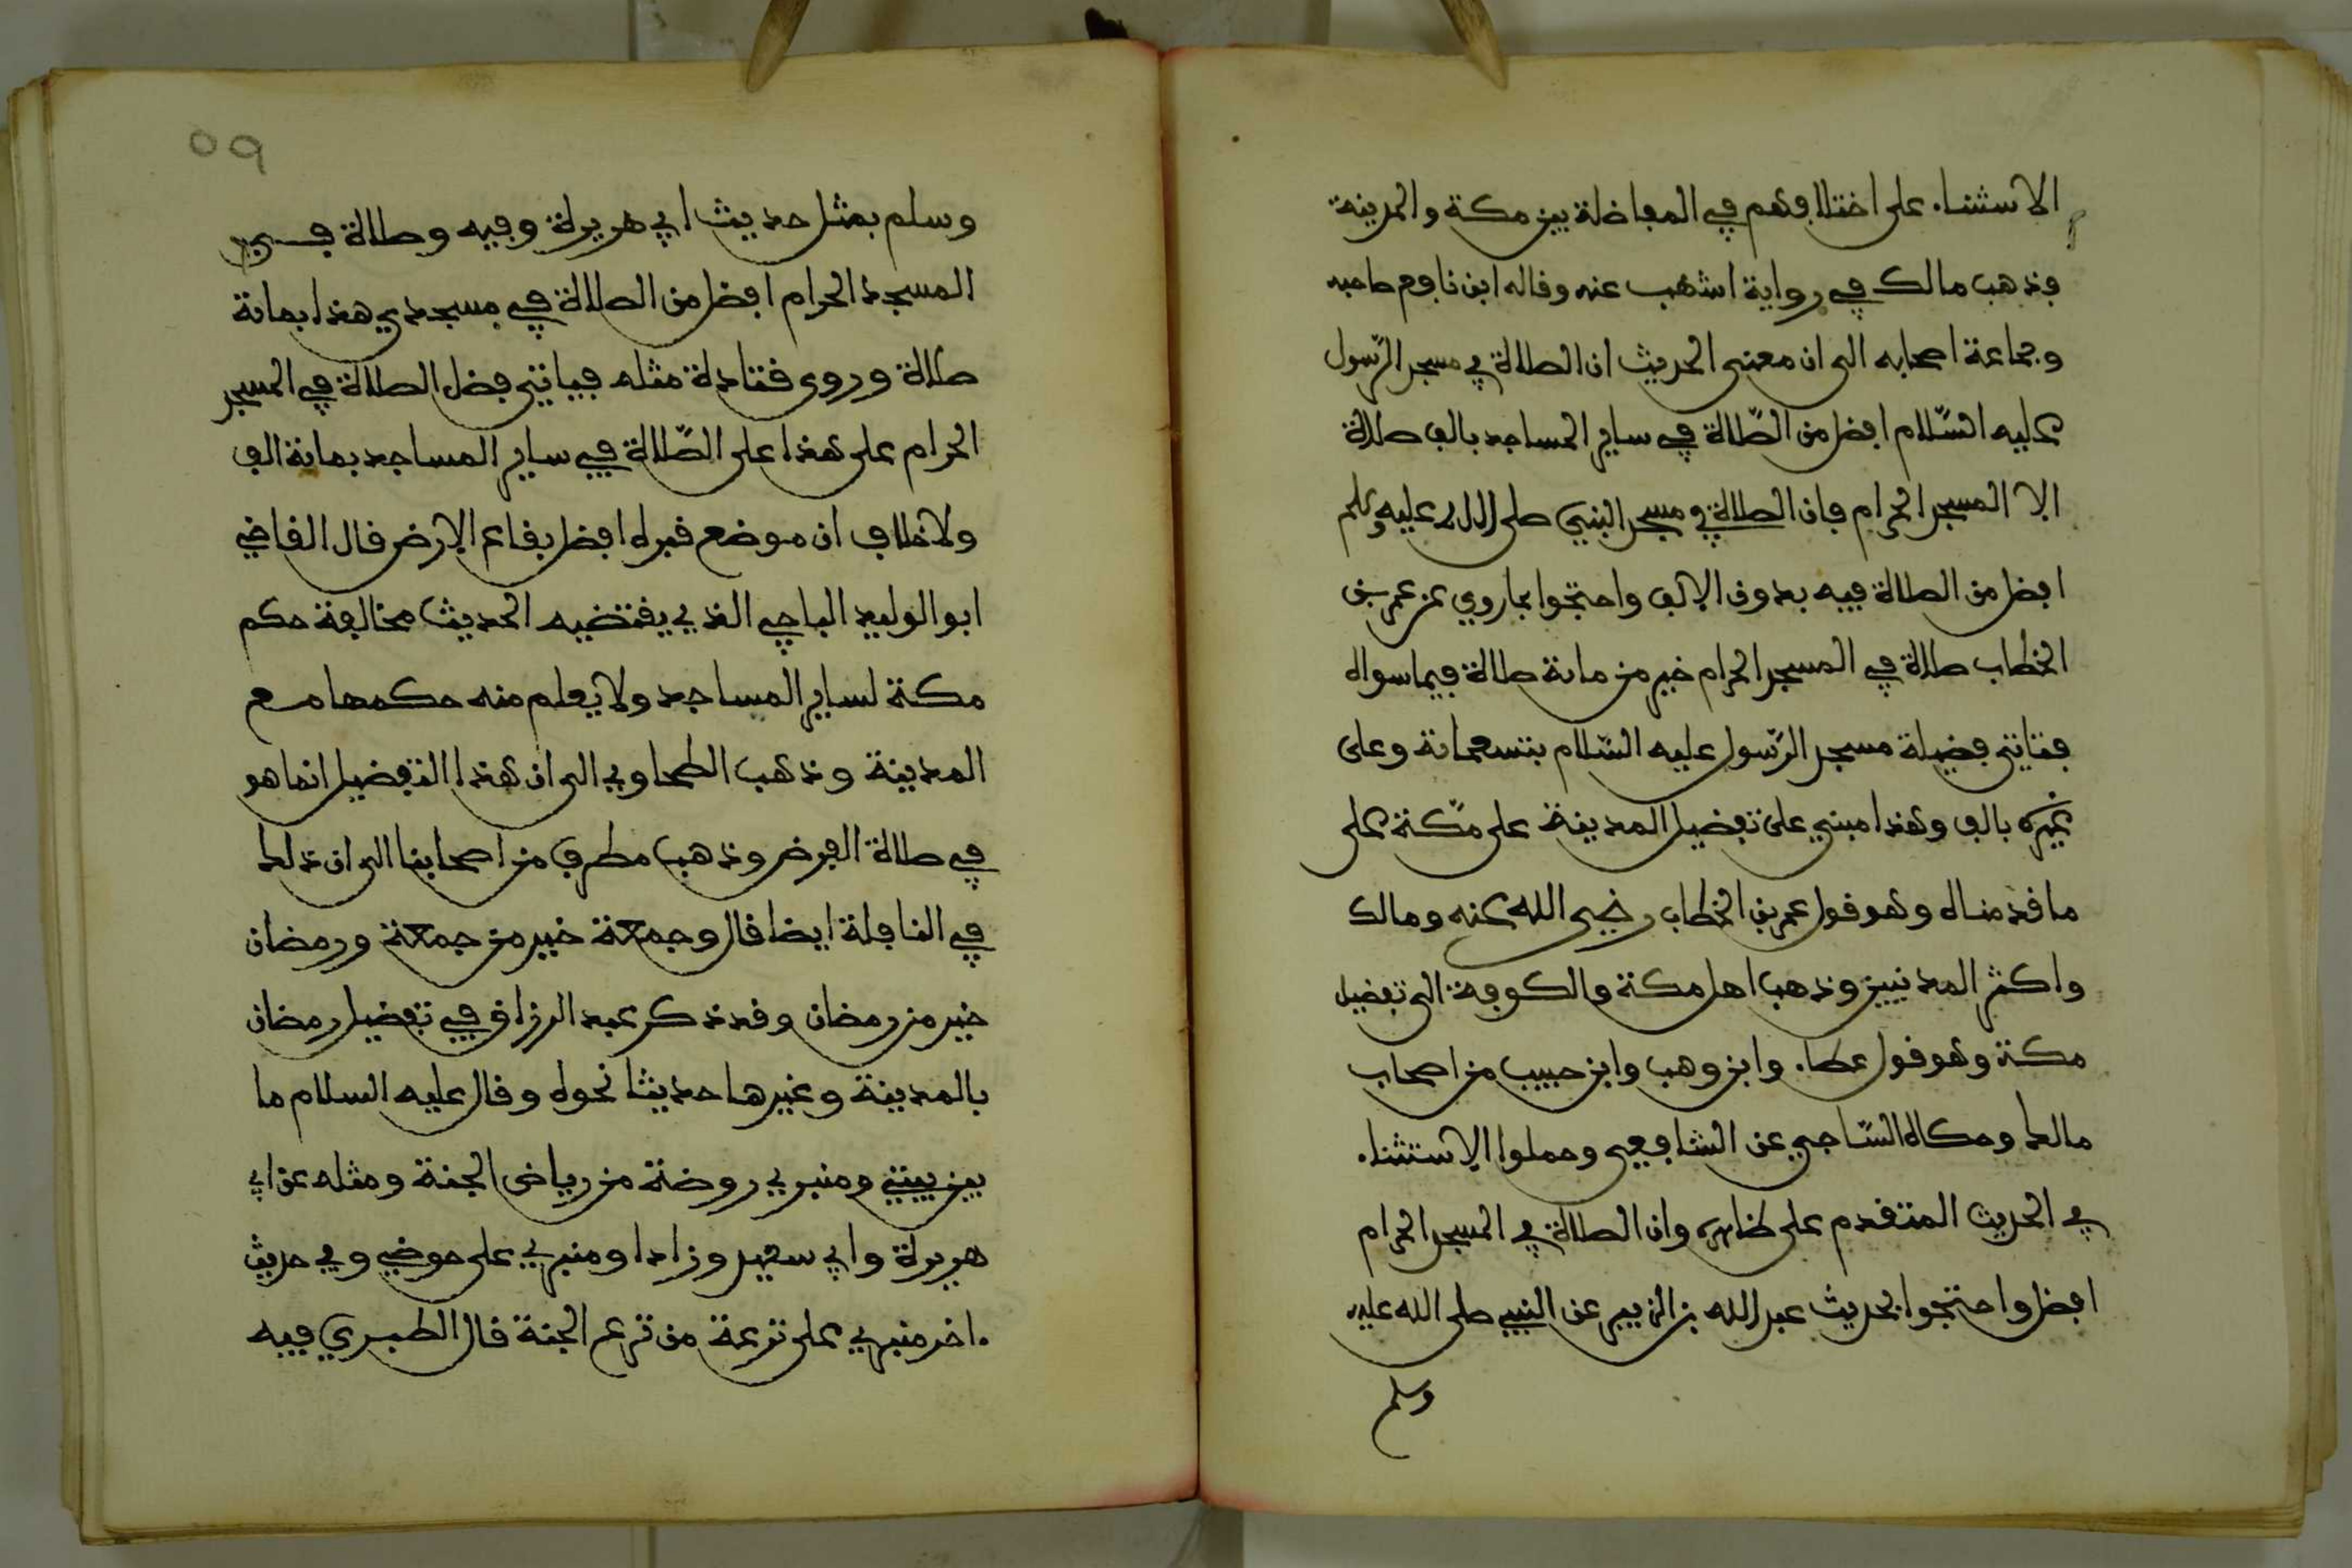 الاستثناء على اختلافهم في المفاضلة بين مكة والمدينة
فذهب مالك في رواية اشهب عنه وقاله ابن نافع صاحبه
وجماعة اصحابه الى ان معنى الحديث ان الصلاة في مسجد الرّسول
عليه السّلام افضل من الصّلاة في ساير المساجد بالف صلاة
الا المسجد الحرام فان الصلاة في مسجد النبي صلى الله عليه وسلم
افضل من الصلاة فيه بدون الالف واحتجوا بما روي عن عمر بن
الخطاب صلاة في المسجد الحرام خير من ماىة صلاة فيما سواه
فتاتي فضيلة مسجد الرّسول عليه السّلام بتسعماىة وعلى
غيره بالف وهذا مبني على تفضيل المدينة على مكّة على
ما قدمناه وهو قول عمر بن الخطاب رضي الله عنه ومالك
واكثر المدنيين وذهب اهل مكة والكوفة الى تفضيل
مكة وهو قول عطاء وابن وهب وابن حبيب من اصحاب
مالك وحكاه السّاجي عن الشافعي وحملوا الاستثناء
في الحديث المتقدم على ظاهره وان الصلاة في المسجد الحرام
افضل واحتجوا بحديث عبد الله بن الزبير عن النبي صلى الله عليه
وسلم
٥٩
وسلم بمثل حديث ابي هريرة وفيه وصلاة في
المسجد الحرام افضل من الصلاة في مسجدي هذا بماىة
صلاة وروى قتادة مثله فياتي فضل الصلاة في المسجد
الحرام على هذا على الصّلاة في ساير المساجد بماىة الف
ولا خلاف ان موضع قبره افضل بقاع الارض قال القاضي
ابو الوليد الباجي الذي يقتضيه الحديث مخالفة حكم
مكة لساير المساجد ولا يعلم منه حكمها مع
المدينة وذهب الطحاوي الى ان هذا التفضيل انما هو
في صلاة الفرض وذهب مطرف من اصحابنا الى ان ذلك
في النافلة ايضا قال وجمعة خير من جمعة ورمضان
خير من رمضان وقد ذكر عبد الرزاق في تفضيل رمضان
بالمدينة وغيرها حديثا نحوه وقال عليه السلام ما
بين بيتي ومنبري روضة من رياض الجنة ومثله عن ابي
هريرة وابي سعيد وزادا ومنبري على حوضي وفي حديث
اخر منبري على ترعة من ترع الجنة قال الطبري فيه